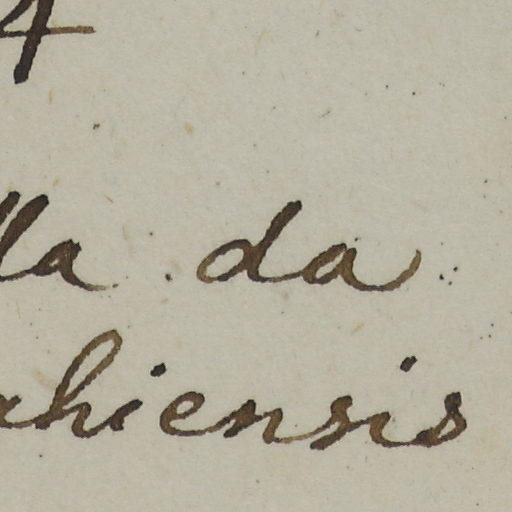 4
lla da
ahiensis